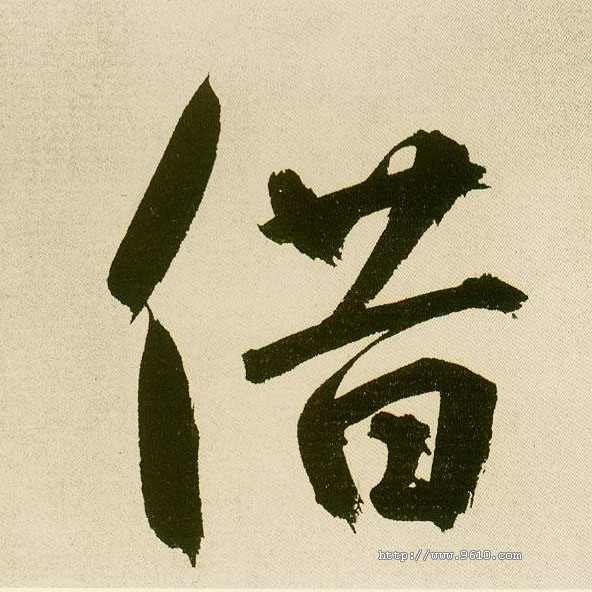 借
http://www.9610.com